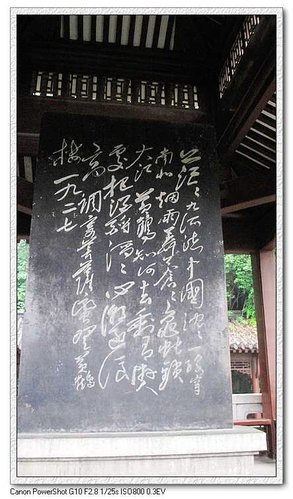 茫々九派流中國沉々一線穿
南北烟雨莽蒼々龜蛇鎖
大江黄鶴知何去剩有遊人
處把酒酹滔々心潮逐浪
高調寄菩薩蠻登黄鶴
樓一九二七
Canon PowerShot G10 F2.8 1/25s ISO800 0.3EV